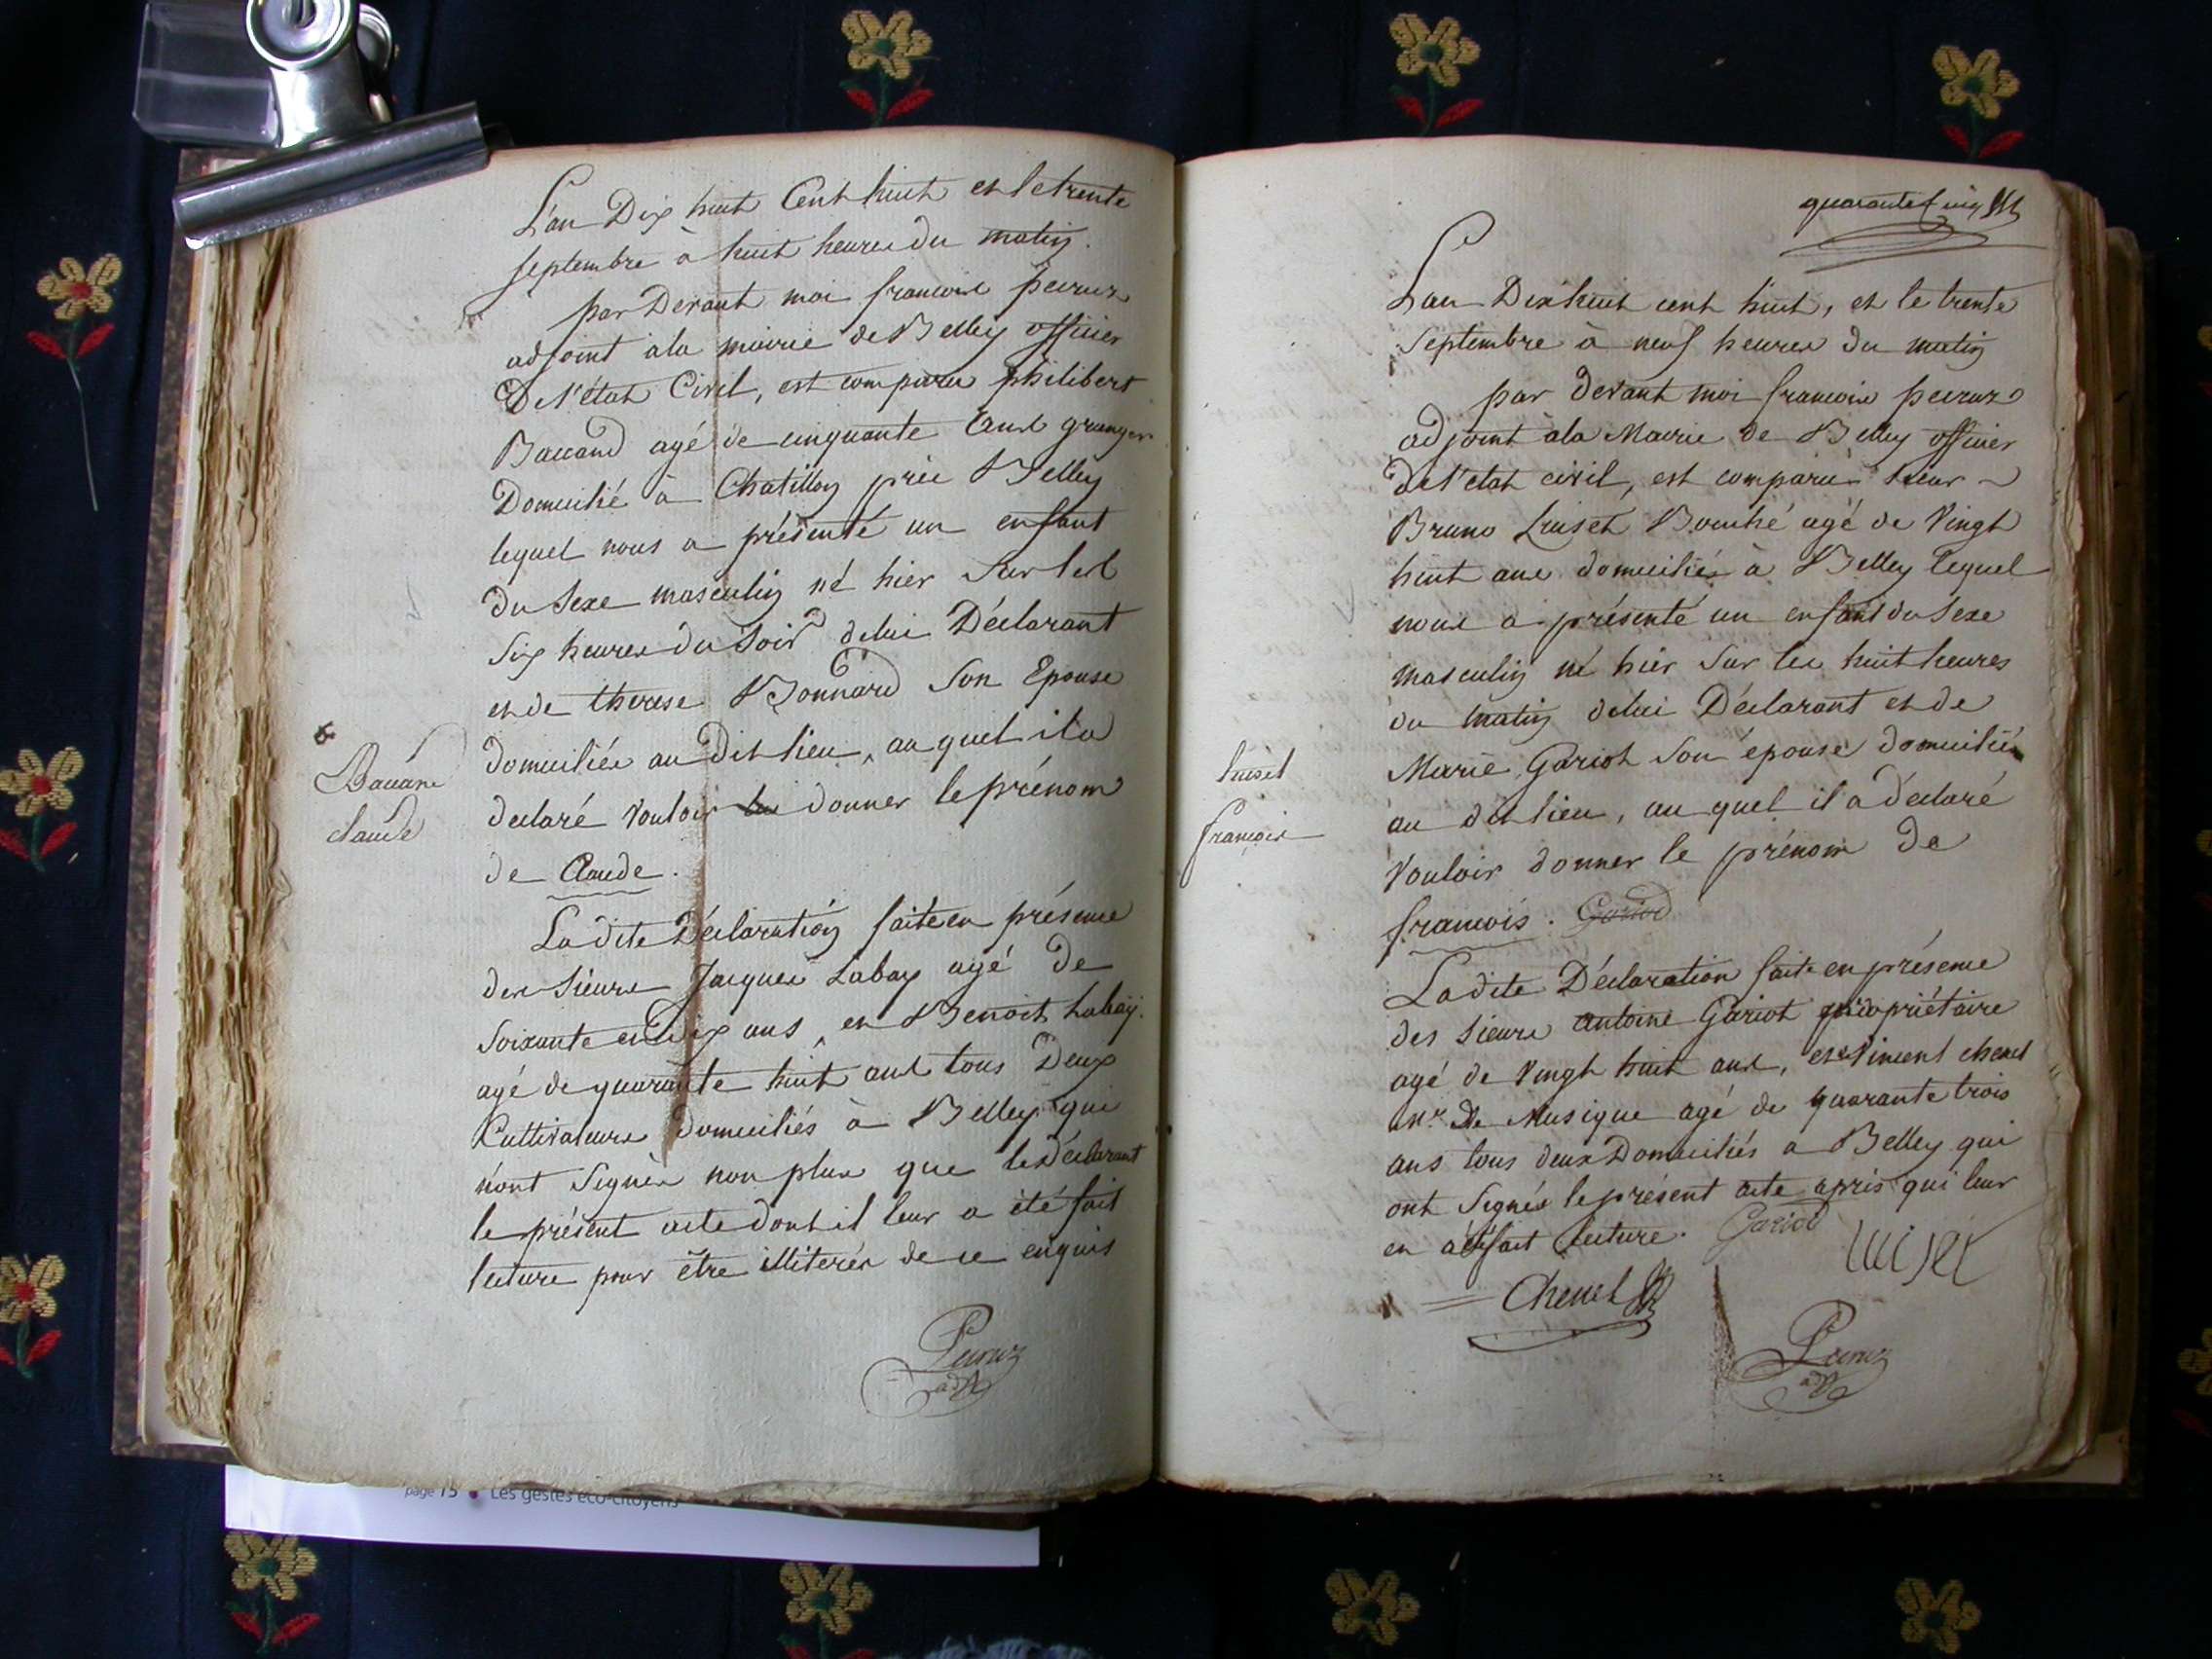 L'an Dix huit Cent huit et le trente
septembre à huit heures du matin.
par Devant moi francois peuruz
adjoint a la mairie de Belley officier
De l'état Civil, est comparu philibert
Baccand agé de cinquante Ans granger
Domicilié à Chatillon près Belley
lequel nous a présenté un enfant
du Sexe masculin né hier Sur les
Six heures du Soir de lui Déclarant
et de therese Bonnard Son Epouse
domiciliée au Dit lieu, au quel il a
declaré Vouloir donner le prénom
de Claude.
La dite Déclaration faite en présence
des Sieurs Jacques Labay agé de
Soixante et dix ans et Benoit Labay
agé de quarante huit ans tous Deux
Cultivateurs domiciliés à Belley qui
n'ont Signés non plus que le déclarant
le présent acte dont il leur a été fait
lecture pour être illiterés de ce enquis
Peuruz
adt
Baccand
claude
quarante Cinq
L'an Dix huit cent huit, et le trente
Septembre à neuf heures du matin
par devant moi francois peuruz
adjoint a la Mairie de Belley officier
de l'etat civil, est comparu Sieur
Bruno Luiset Bouché agé de Vingt
huit ans domicilié à Belley lequel
nous a présenté un enfant du Sexe
masculin né hier Sur les huit heures
du matin de lui Déclarant et de
Marie Gariot Son épouse domiciliée
au dit lieu, au quel il a déclaré
Vouloir donner le prénom de
francois. Gariod
La dite Déclaration faite en présence
des Sieurs antoine Gariot propriétaire
agé de Vingt huit ans, et Vincent chenel
Mr. De Musique agé de quarante trois
ans tous deux Domiciliés a Belley qui
ont Signés le présent acte après qui leur
en a été fait lecture. Gariod
luiset
Chenel
Peuruz
adt
luiset
françois
page 15 • Les gestes éco-citoyens